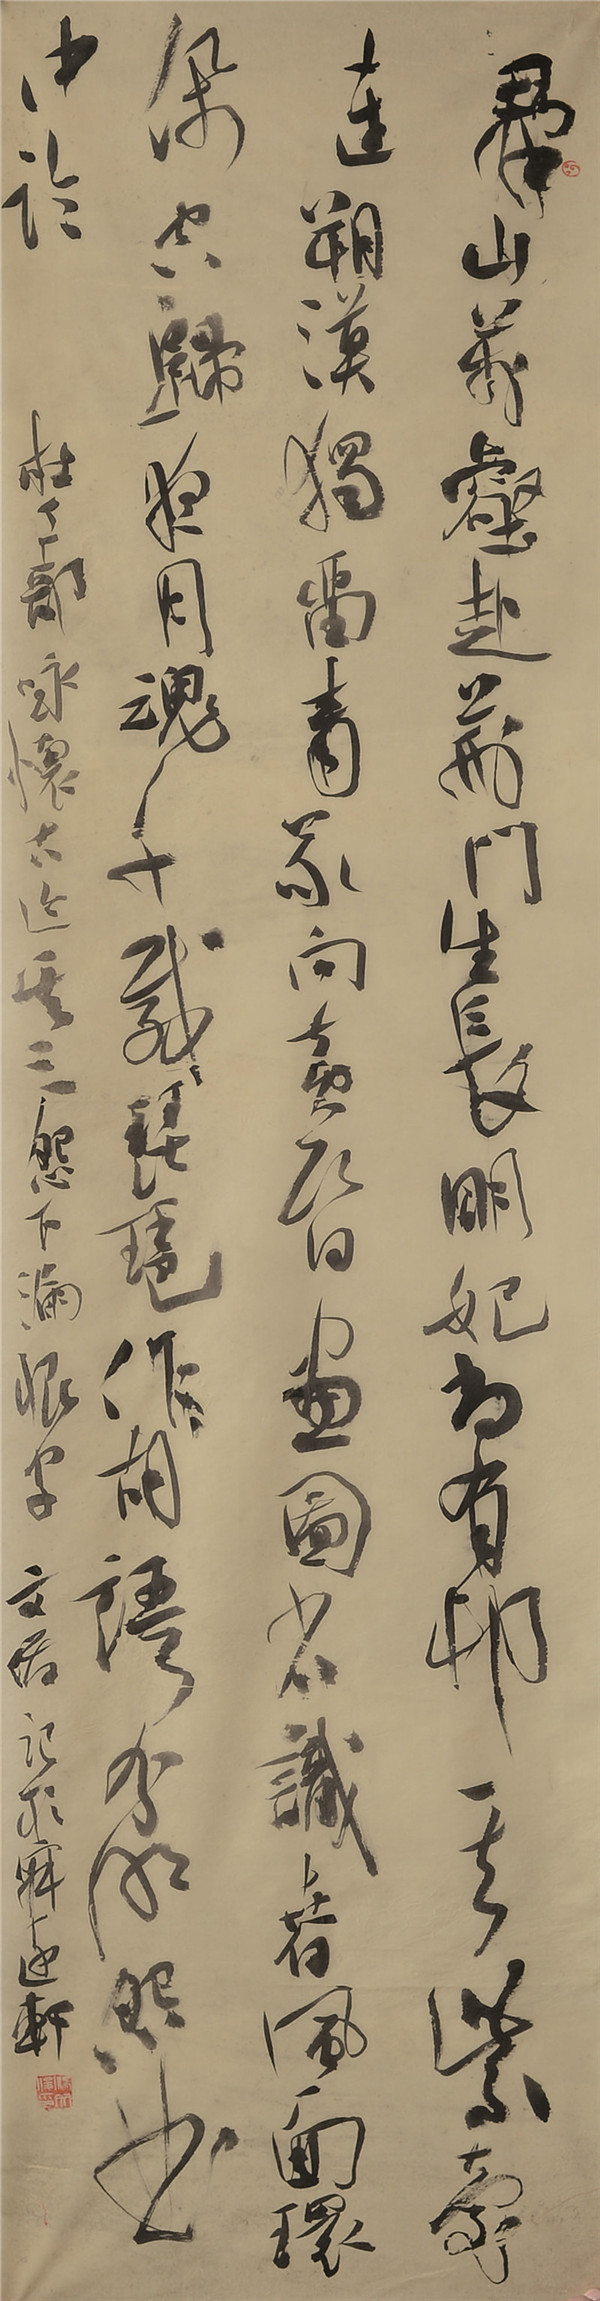 羣山萬壑赴荊門生長明妃尚有邨一去紫臺
連朔漠獨留青冢向黃昏畫圖省識春風面環
佩空歸夜月魂千載琵琶作胡語分明怨曲
中論
杜工部詠懷古迹其三怨下漏恨字 文 記於 軒